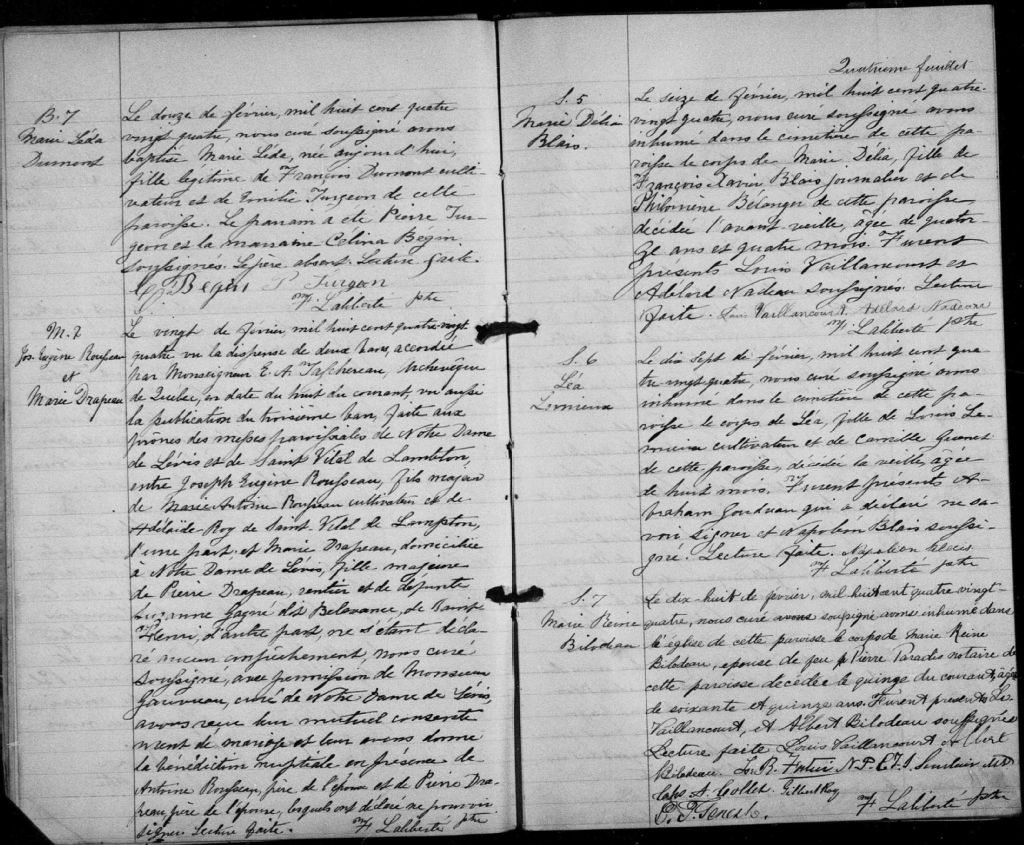 B. 7
Marie Léda
Dumont
Le douze de février, mil huit cent quatre
vingt quatre, nous curé soussigné avons
baptisé Marie Léda, née aujourd'hui,
fille legitime de François Dumont culti-
vateur et de Emilie Turgeon de cette
paroisse. Le parrain a été Pierre Tur-
geon et la marraine Célina Begin
soussignés. Le père absent. Lecture faite.
C. Begin P. Turgeon
Laliberté ptre
M. 2
Jos. Eugène Rousseau
et
Marie Drapeau
Le vingt de février mil huit cent quatre-vingt
quatre vu la dispense de deux bans, accordée
par Monseigneur E. A. Taschereau, Archevêque
de Québec, en date du huit du courant, vu aussi
la publication du troisième ban, faite aux
prônes des messes paroissiales de Notre Dame
de Lévis et de Saint Vital de Lambton,
entre Joseph Eugène Rousseau, fils majeur
de Marie Antoine Rousseau cultivateur et de
Adélaide Roy de Saint Vital de Lampton,
d'une part et Marie Drapeau, domiciliée
à Notre Dame de Lévis, fille majeure
de Pierre Drapeau, rentier et de défunte
Gagné dit Belavance, de Saint
Henri, d'autre part, ne s'étant décla-
ré aucun empêchement, nous curé
soussigné, avec permission de Monsieur
Gauvreau, curé de Notre Dame de Lévis,
avons reçu leur mutuel consente
ment de mariage et leur avons donné
la bénédiction nuptiale en présence de
Antoine Rousseau, père de l'époux et de Pierre Dra-
peau père de l'épouse, lesquels ont déclaré ne pouvoir
signer. Lecture faite. Laliberté ptre
Quatrième feuillet
S. 5
Marie Délia
Blais.
Le seize de février, mil huit cent quatre-
vingt quatre, nous curé soussigné avons
inhumé dans le cimetière de cette pa-
roisse le corps de Marie Délia, fille de
François Xavier Blais journalier et de
Philomène Bélanger de cette paroisse
décédée l'avant-veille, âgée de quator
ze ans et quatre mois. Furent
présents Louis Vaillancourt et
Adelord Nadeau soussignés. Lecture
faite. Louis Vaillancourt Adelord Nadeau
Laliberté ptre
S. 6
Léa
Lemieux
Le dix sept de février, mil huit cent qua
tre vingt quatre, nous curé soussigné avons
inhumé dans le cimetière de cette pa-
roisse le corps de Léa, fille de Louis Le-
mieux cultivateur et de Camille
de cette paroisse, décédée la veille, âgée
de huit mois. Furent présents A-
braham qui a déclaré ne sa-
voir signer et Napoleon Blais soussi-
gné. Lecture faite. Napoleon
Laliberté ptre
S. 7
Marie Reine
Bilodeau
Le dix-huit de février, mil huit cent quatre vingt-
quatre, nous curé avons soussigné avons inhumé dans
l'église de cette paroisse le corps de Marie Reine
Bilodeau, épouse de feu Pierre Paradis notaire de
cette paroisse décédée le quinze du courant, âgée
de soixante et quinze ans. Furent présents Ls
Vaillancourt, et Albert Bilodeau soussignés
Lecture faite Louis Vaillancourt Albert
Bilodeau. N.P.
A. Collet. Gilbert Roy
Laliberté ptre